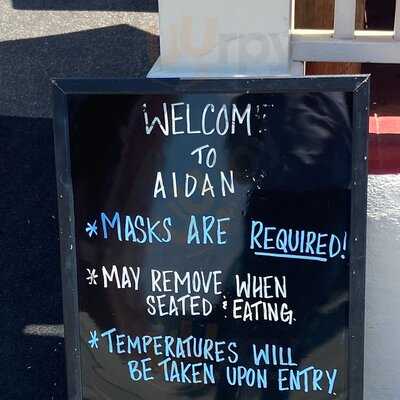 WELCOM
TO
AIDAN
*MASKS ARE REQUIRED!
*MAY REMOVE WHEN
SEATED & EATING.
*TEMPERATURES WILL
BE TAKEN UPON ENTRY.